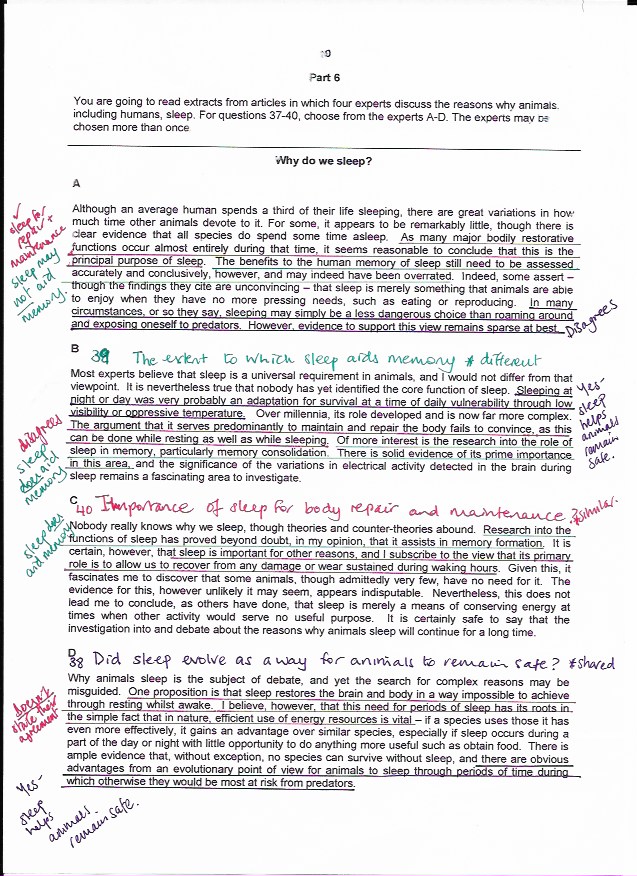 10
Part 6
You are going to read extracts from articles in which four experts discuss the reasons why animals.
including humans, sleep. For questions 37-40, choose from the experts A-D. The experts may be
chosen more than once
Why do we sleep?
A
Although an average human spends a third of their life sleeping, there are great variations in how
much time other animals devote to it. For some, it appears to be remarkably little, though there is
clear evidence that all species do spend some time asleep. As many major bodily restorative
functions occur almost entirely during that time, it seems reasonable to conclude that this is the
principal purpose of sleep. The benefits to the human memory of sleep still need to be assessed
accurately and conclusively, however, and may indeed have been overrated. Indeed, some assert –
though the findings they cite are unconvincing – that sleep is merely something that animals are able
to enjoy when they have no more pressing needs, such as eating or reproducing. In many
circumstances, or so they say, sleeping may simply be a less dangerous choice than roaming around
and exposing oneself to predators. However, evidence to support this view remains sparse at best.
✓
sleep for
repair +
maintenance
sleep may
not aid
memory.
Disagrees
B
39 The extent to which sleep aids memory * different
Most experts believe that sleep is a universal requirement in animals, and I would not differ from that
viewpoint. It is nevertheless true that nobody has yet identified the core function of sleep. Sleeping at
night or day was very probably an adaptation for survival at a time of daily vulnerability through low
visibility or oppressive temperature. Over millennia, its role developed and is now far more complex.
The argument that it serves predominantly to maintain and repair the body fails to convince, as this
can be done while resting as well as while sleeping. Of more interest is the research into the role of
sleep in memory, particularly memory consolidation. There is solid evidence of its prime importance
in this area, and the significance of the variations in electrical activity detected in the brain during
sleep remains a fascinating area to investigate.
disagrees
sleep
does aid
memory
Yes-
sleep
helps
animals
remain
safe.
C
40 Importance of sleep for body repair and maintenance? *similar.
Nobody really knows why we sleep, though theories and counter-theories abound. Research into the
functions of sleep has proved beyond doubt, in my opinion, that it assists in memory formation. It is
certain, however, that sleep is important for other reasons, and I subscribe to the view that its primary
role is to allow us to recover from any damage or wear sustained during waking hours. Given this, it
fascinates me to discover that some animals, though admittedly very few, have no need for it. The
evidence for this, however unlikely it may seem, appears indisputable. Nevertheless, this does not
lead me to conclude, as others have done, that sleep is merely a means of conserving energy at
times when other activity would serve no useful purpose. It is certainly safe to say that the
investigation into and debate about the reasons why animals sleep will continue for a long time.
sleep does
aid memory
D
38 Did sleep evolve as a way for animals to remain safe? *shared
Why animals sleep is the subject of debate, and yet the search for complex reasons may be
misguided. One proposition is that sleep restores the brain and body in a way impossible to achieve
through resting whilst awake. I believe, however, that this need for periods of sleep has its roots in
the simple fact that in nature, efficient use of energy resources is vital – if a species uses those it has
even more effectively, it gains an advantage over similar species, especially if sleep occurs during a
part of the day or night with little opportunity to do anything more useful such as obtain food. There is
ample evidence that, without exception, no species can survive without sleep, and there are obvious
advantages from an evolutionary point of view for animals to sleep through periods of time during
which otherwise they would be most at risk from predators.
Doesn't
state their
agreement
Yes-
sleep
helps
animals.
remain safe.